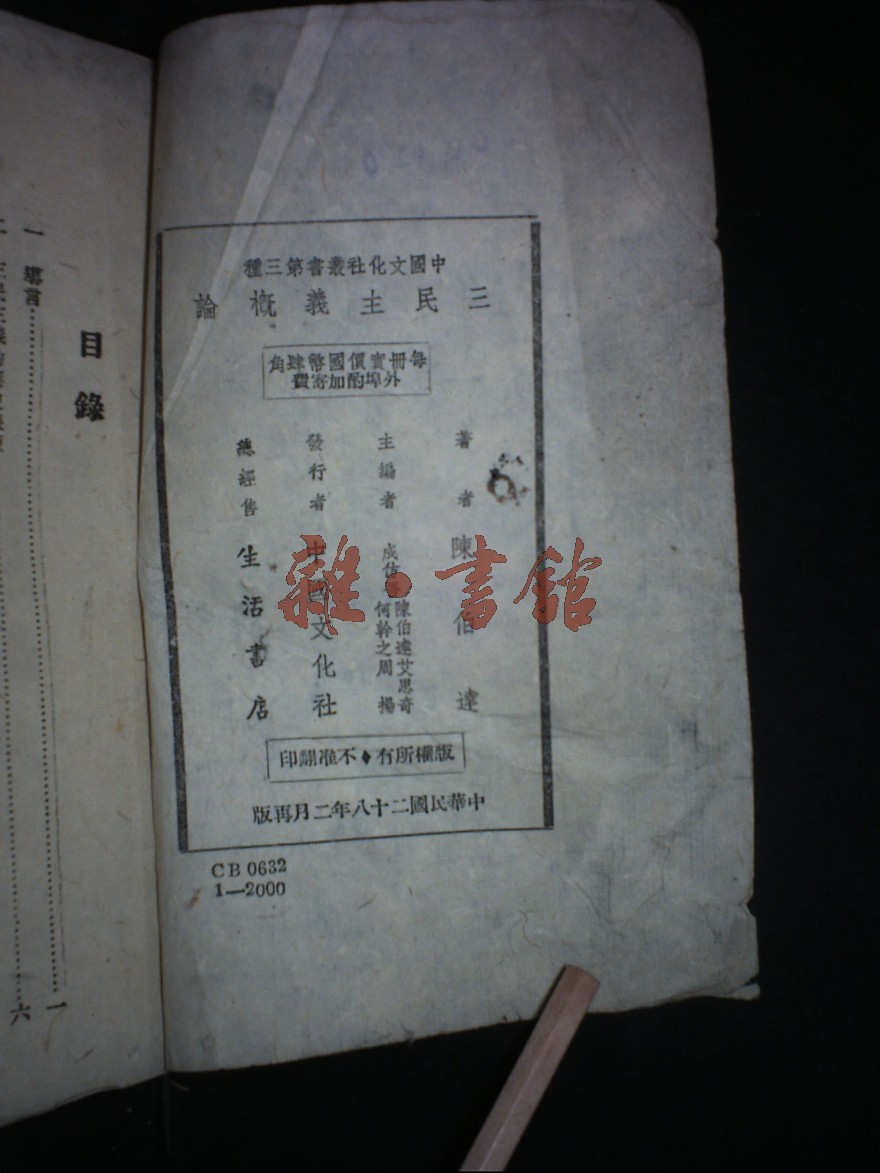 中國文化社叢書第三種
三民主義概論
每冊實價國幣肆角
外埠酌加寄費
著者 陳伯達
主編者 成仿吾 陳伯達 艾思奇
何幹之 周揚
發行者 中國文化社
總經售 生活書店
版權所有♦不准翻印
中華民國二十八年二月再版
CB 0632
1—2000
雜·書館
目錄
一 導言……一
二 三民主義的……六